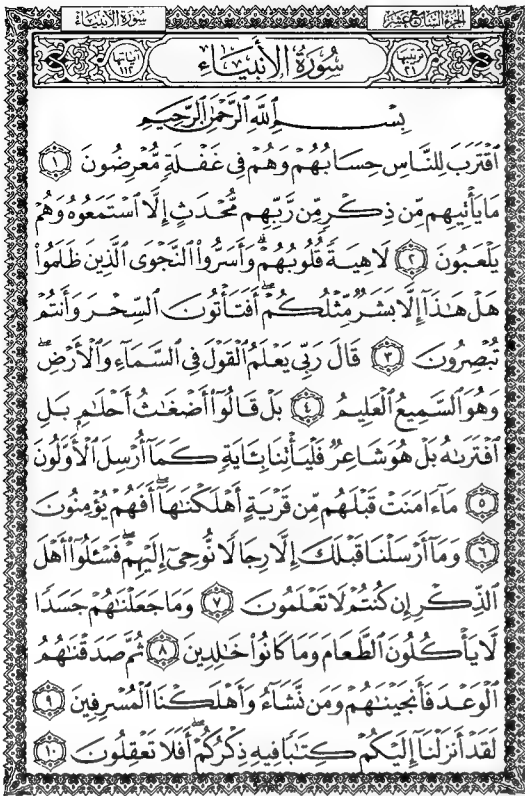 سُورَةُ الأَنبِيَاء
الجُزءُ السَّابِعَ عَشَرَ
ترتيبها ٢١
سُورَةُ الأَنبِيَاءِ
آياتها ١١٢
بِسْمِ ٱللَّهِ ٱلرَّحْمَٰنِ ٱلرَّحِيمِ
ٱقْتَرَبَ لِلنَّاسِ حِسَابُهُمْ وَهُمْ فِى غَفْلَةٍ مُّعْرِضُونَ ١
مَا يَأْتِيهِم مِّن ذِكْرٍ مِّن رَّبِّهِم مُّحْدَثٍ إِلَّا ٱسْتَمَعُوهُ وَهُمْ
يَلْعَبُونَ ٢ لَاهِيَةً قُلُوبُهُمْ ۗ وَأَسَرُّوا۟ ٱلنَّجْوَى ٱلَّذِينَ ظَلَمُوا۟
هَلْ هَٰذَآ إِلَّا بَشَرٌ مِّثْلُكُمْ ۖ أَفَتَأْتُونَ ٱلسِّحْرَ وَأَنتُمْ
تُبْصِرُونَ ٣ قَالَ رَبِّى يَعْلَمُ ٱلْقَوْلَ فِى ٱلسَّمَآءِ وَٱلْأَرْضِ ۖ
وَهُوَ ٱلسَّمِيعُ ٱلْعَلِيمُ ٤ بَلْ قَالُوٓا۟ أَضْغَٰثُ أَحْلَٰمٍۭ بَلِ
ٱفْتَرَىٰهُ بَلْ هُوَ شَاعِرٌ فَلْيَأْتِنَا بِـَٔايَةٍ كَمَآ أُرْسِلَ ٱلْأَوَّلُونَ
٥ مَآ ءَامَنَتْ قَبْلَهُم مِّن قَرْيَةٍ أَهْلَكْنَٰهَآ ۖ أَفَهُمْ يُؤْمِنُونَ
٦ وَمَآ أَرْسَلْنَا قَبْلَكَ إِلَّا رِجَالًا نُّوحِىٓ إِلَيْهِمْ ۖ فَسْـَٔلُوٓا۟ أَهْلَ
ٱلذِّكْرِ إِن كُنتُمْ لَا تَعْلَمُونَ ٧ وَمَا جَعَلْنَٰهُمْ جَسَدًا
لَّا يَأْكُلُونَ ٱلطَّعَامَ وَمَا كَانُوا۟ خَٰلِدِينَ ٨ ثُمَّ صَدَقْنَٰهُمُ
ٱلْوَعْدَ فَأَنجَيْنَٰهُمْ وَمَن نَّشَآءُ وَأَهْلَكْنَا ٱلْمُسْرِفِينَ ٩
لَقَدْ أَنزَلْنَآ إِلَيْكُمْ كِتَٰبًا فِيهِ ذِكْرُكُمْ ۖ أَفَلَا تَعْقِلُونَ ١٠